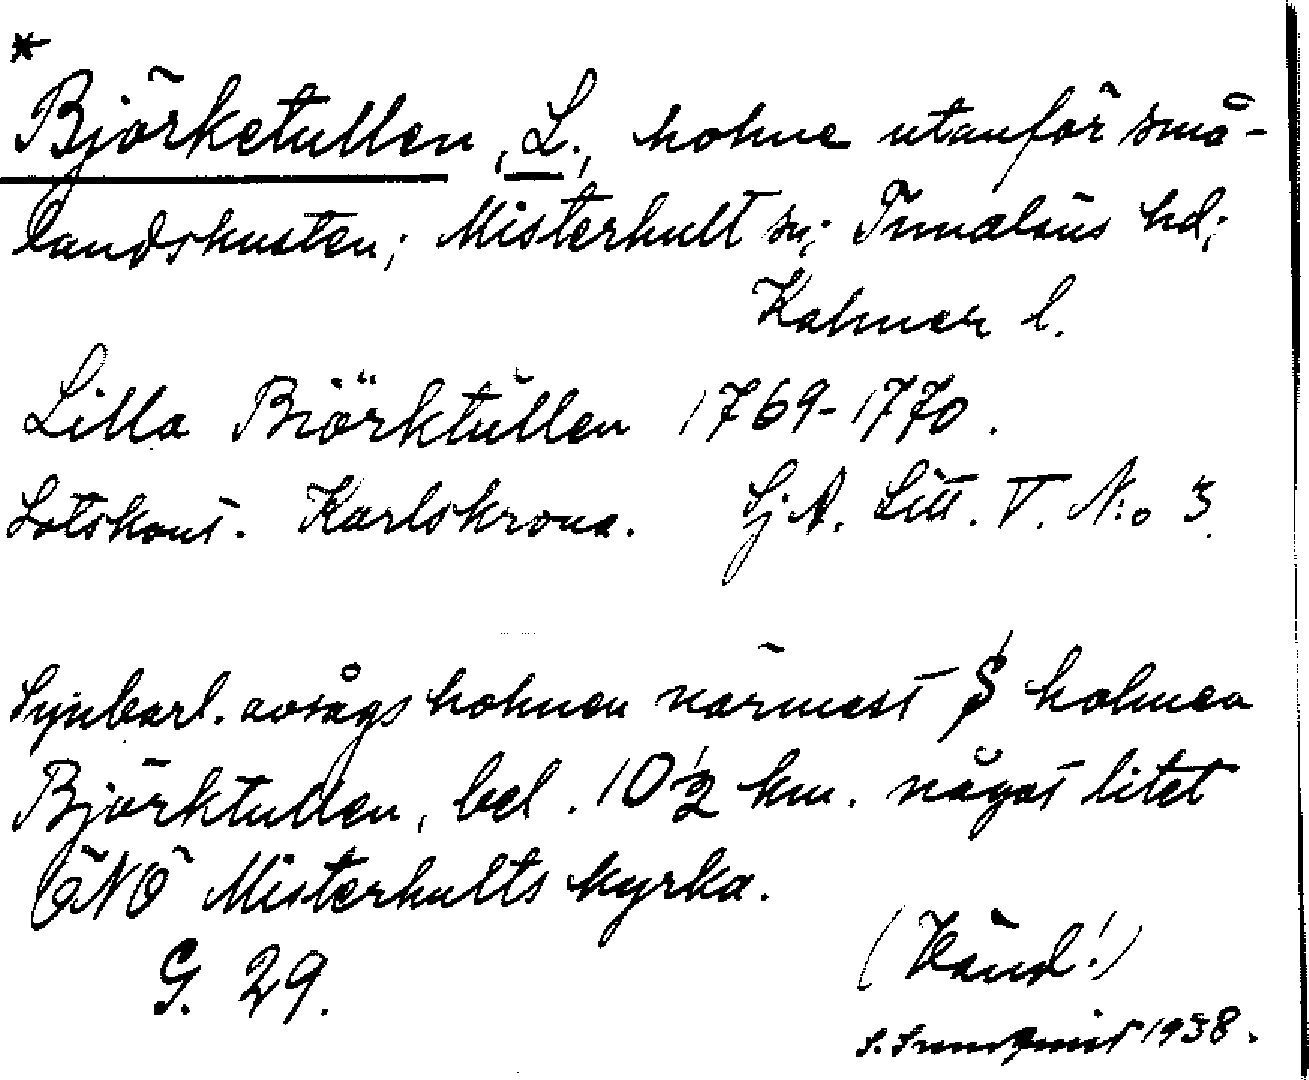 *
Björketullen, L., holme utanför små-
landskusten; Misterhult sn; Tunaläns hd;
Kalmar l.
Lilla Biörktullen 1769-1770.
Lotskont. Karlskrona. Sj A. Litt. V. N:o 3.
Synbarl. avsågs holmen närmast S holmen
Björktullen, bel. 10½ km. något litet
ÖNÖ Misterhults kyrka.
G. 29. (Vänd!)
S. Sundqvist 1938.